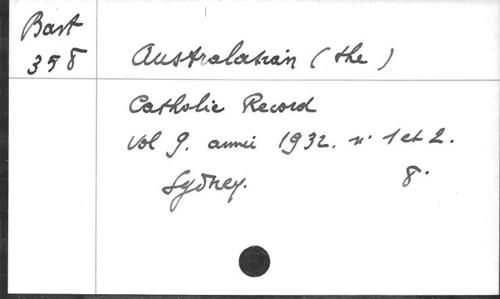 Bast
358
Australasian (the)
Catholic Record
Vol 9. année 1932. n° 1 et 2.
Sydney. 8°